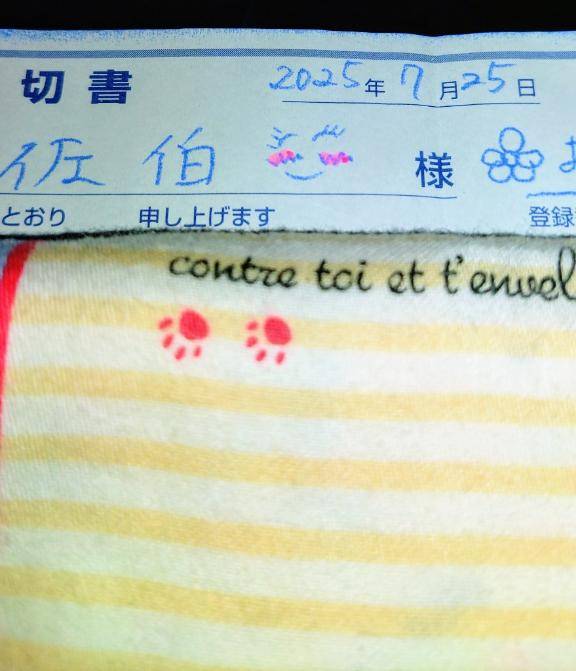 切書
2025年 7月25日
佐伯 様
とおり 申し上げます 登録
contre toi et t'envel